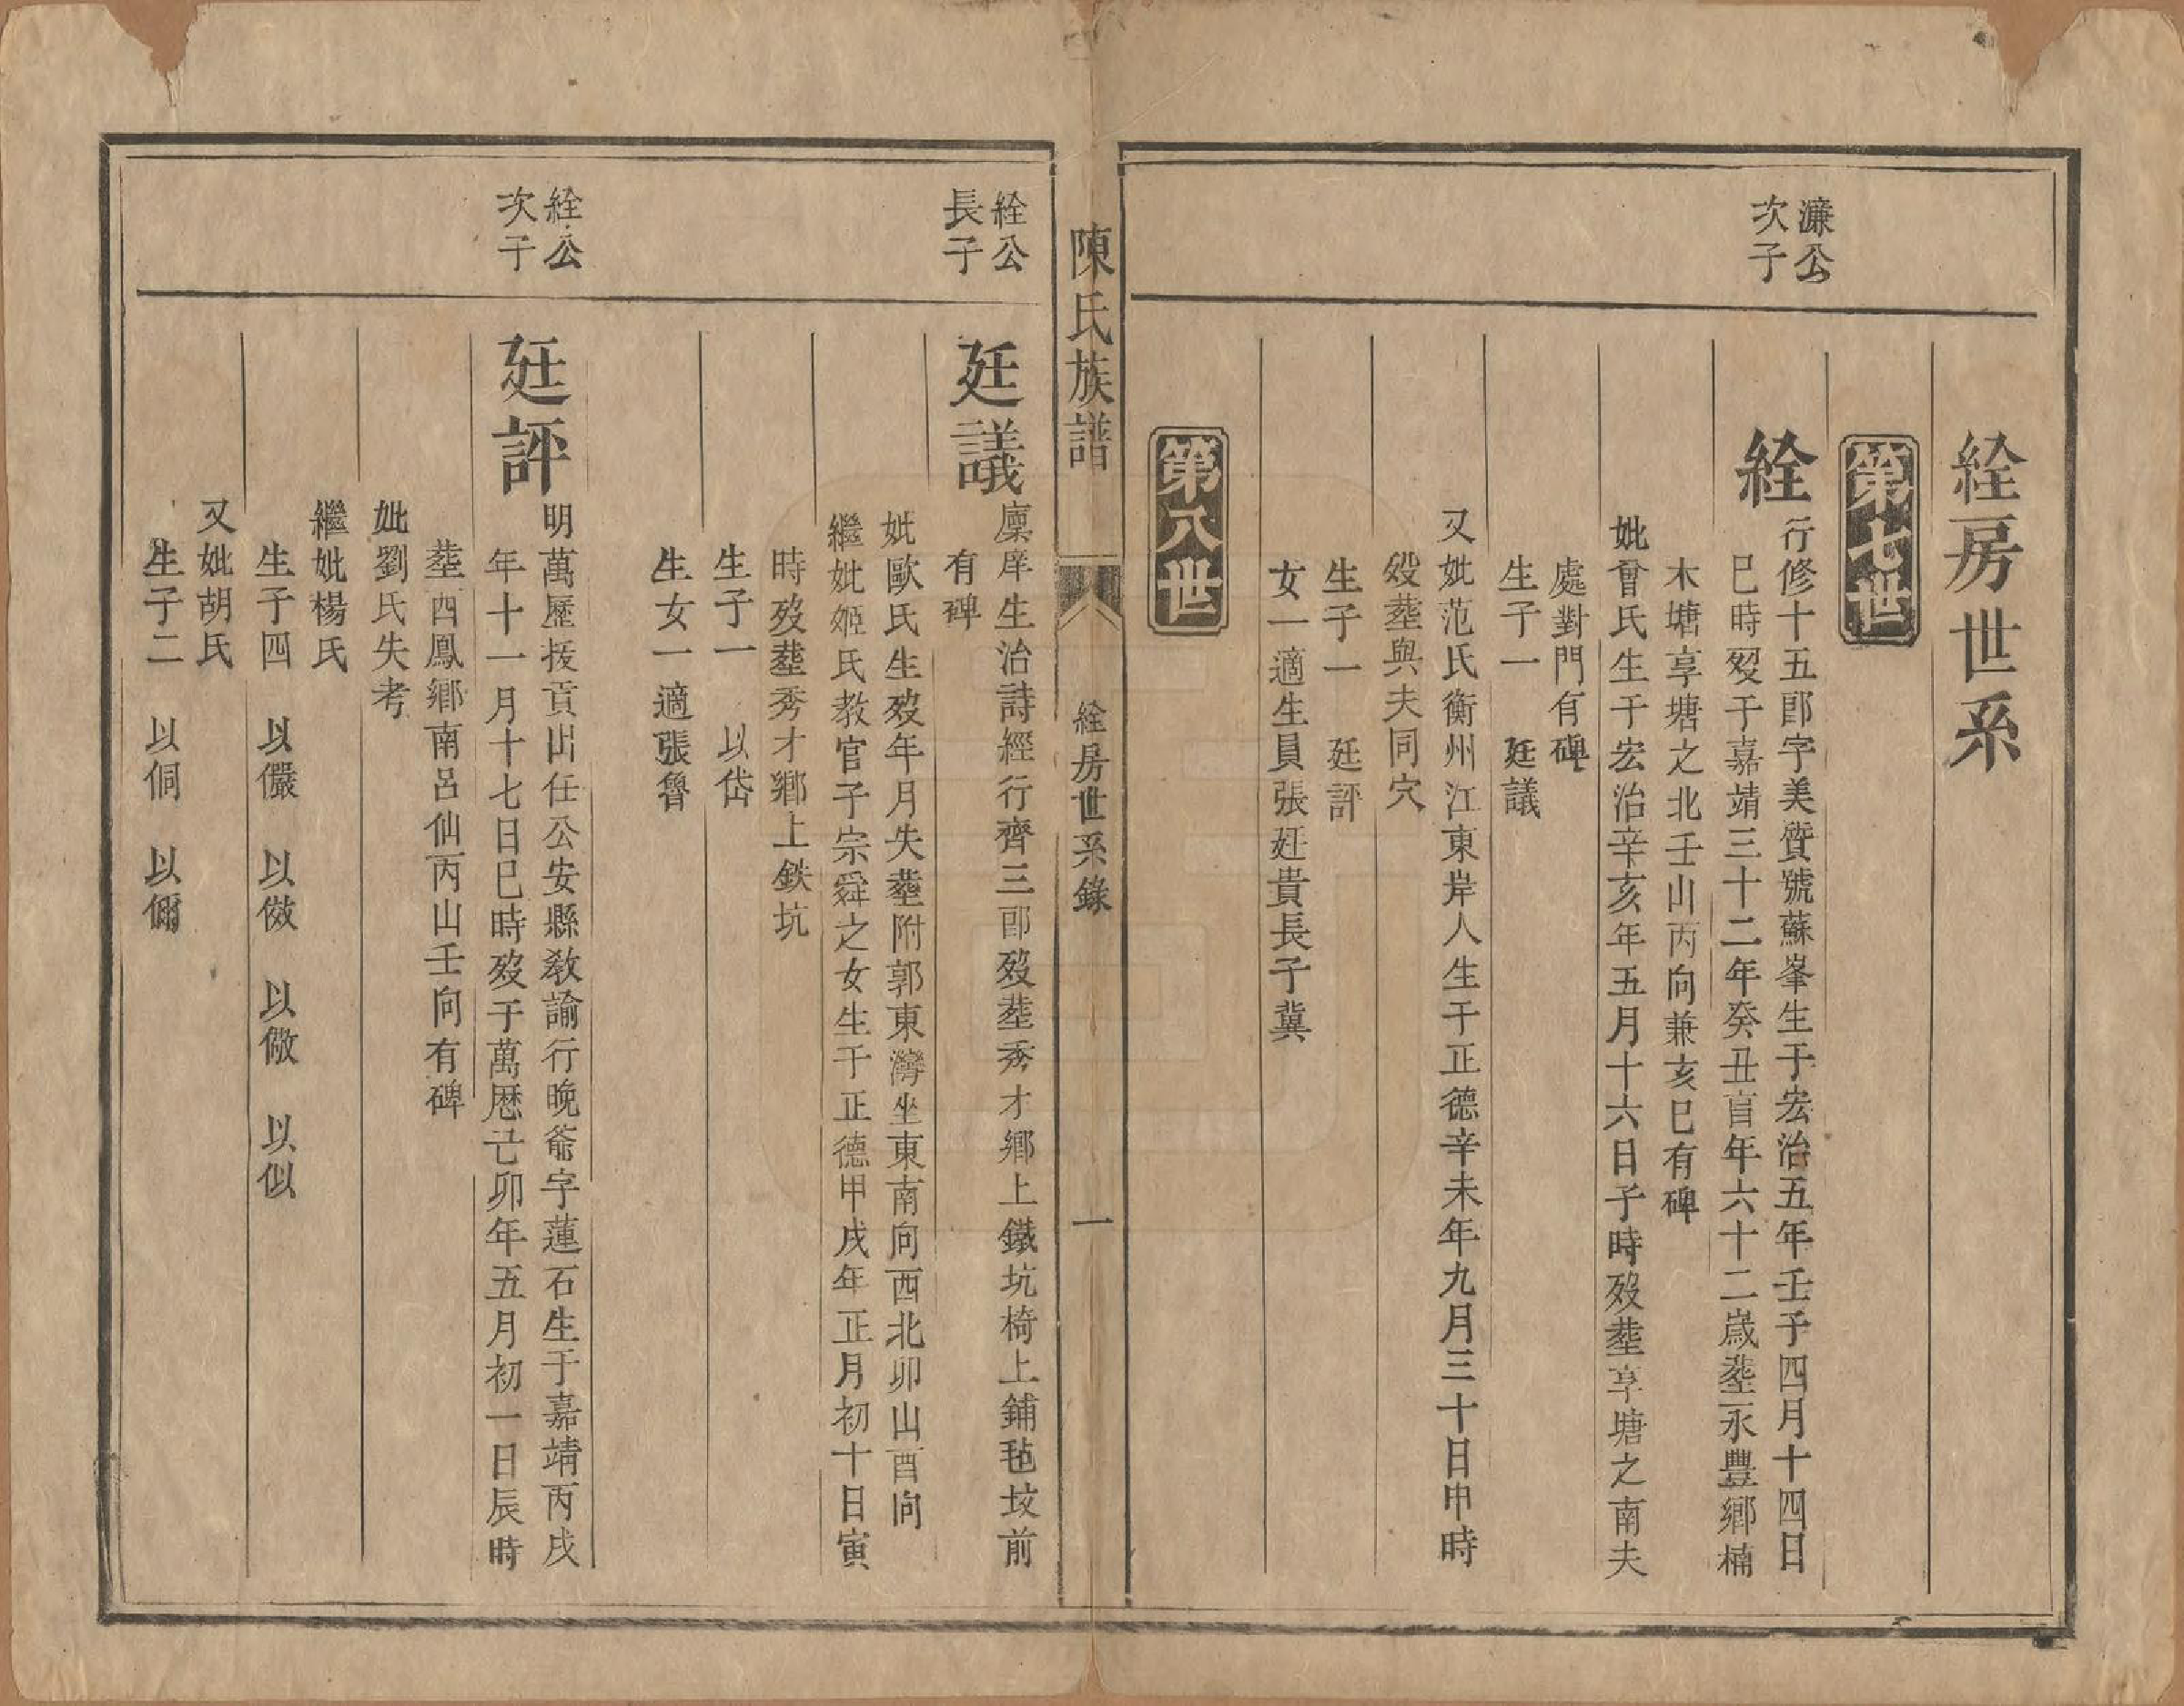 絟房世系
第七世
濂公
次子
絟
行修十五郎字美賢號蘇峯生于宏治五年壬子四月十四日
巳時歿于嘉靖三十二年癸丑享年六十二歲塟永豐鄉楠
木塘享塘之北壬山丙向兼亥巳有碑
妣曾氏生于宏治辛亥年五月十六日子時歿塟享塘之南夫
處對門有碑
生子一　廷議
又妣范氏衡州江東岸人生于正德辛未年九月三十日申時
歿塟與夫同穴
生子一　廷評
女一適生員張廷貴長子冀
第八世
陳氏族譜　絟房世系錄　一
絟公
長子
廷議
廩庠生治詩經行齊三郎歿塟秀才鄉上鐵坑椅上鋪毡坟前
有碑
妣歐氏生歿年月失塟附郭東灣坐東南向西北卯山酉向
繼妣姬氏教官子宗舜之女生于正德甲戌年正月初十日寅
時歿塟秀才鄉上鉄坑
生子一　以岱
生女一適張魯
絟公
次子
廷評
明萬歷拔貢出任公安縣教諭行晚爺字蓮石生于嘉靖丙戌
年十一月十七日巳時歿于萬歷己卯年五月初一日辰時
塟西鳳鄉南呂仙丙山壬向有碑
妣劉氏失考
繼妣楊氏
生子四　以儼　以傚　以儆　以似
又妣胡氏
生子二　以侗　以儞